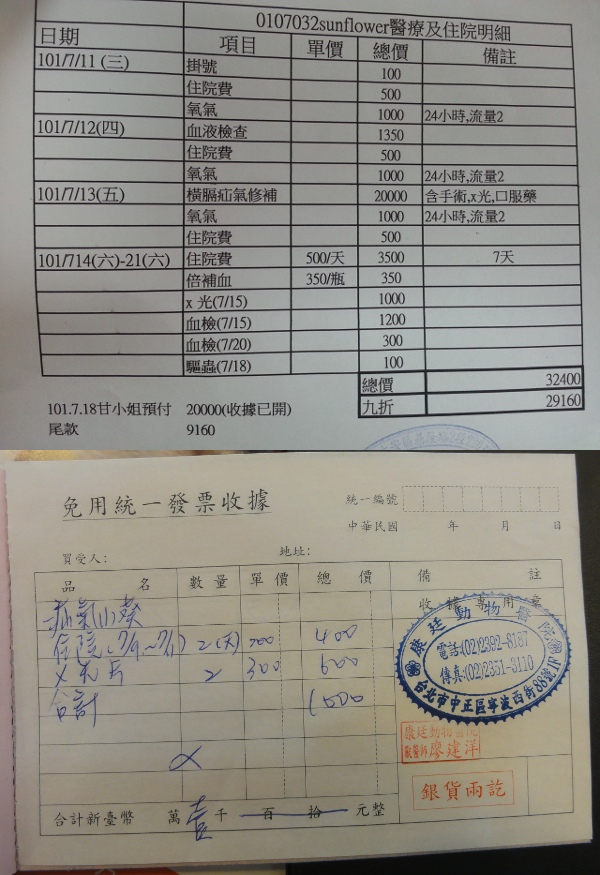 0107032sunflower醫療及住院明細
日期 項目 單價 總價 備註
101/7/11 (三) 掛號 100
住院費 500
氧氣 1000 24小時,流量2
101/7/12(四) 血液檢查 1350
住院費 500
氧氣 1000 24小時,流量2
101/7/13(五) 橫膈疝氣修補 20000 含手術,x光,口服藥
氧氣 1000 24小時,流量2
住院費 500
101/714(六)-21(六) 住院費 500/天 3500 7天
倍補血 350/瓶 350
x 光(7/15) 1000
血檢(7/15) 1200
血檢(7/20) 300
驅蟲(7/18) 100
總價 32400
九折 29160
101.7.18甘小姐預付 20000(收據已開)
尾款 9160
免用統一發票收據
統一編號
中華民國 年 月 日
買受人: 地址:
品名 數量 單價 總價 備註
收據專用章
疝氣小葵
住院(7/9~7/11) 2(天) 200 400
X光片 2 300 600
合計 1000
康廷動物醫院
電話:(02)2392-8187
傳真:(02)2351-3110
台北市中正區寧波西街86號1F
康廷動物醫院
獸醫師 廖建洋
銀貨兩訖
合計新臺幣 萬壹千 百 拾 元整